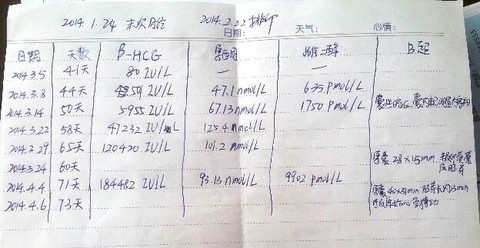 2014.1.24 末次月经 2014.2.22 排卵
日期: 天气: 心情:
日期 天数 β-HCG 孕酮 雌二醇 B超
2014.3.5 41天 80 IU/L — —
2014.3.8 44天 459 IU/L 47.1 nmol/L 635 pmol/L
2014.3.14 50天 5955 IU/L 67.13 nmol/L 1750 pmol/L
2014.3.22 58天 47232 IU/L 125.4 nmol/L
2014.3.29 65天 120420 IU/L 101.2 nmol/L
2014.3.24 60天 孕囊 28×15mm
2014.4.4 71天 184482 IU/L 93.13 nmol/L 9902 pmol/L
2014.4.6 73天